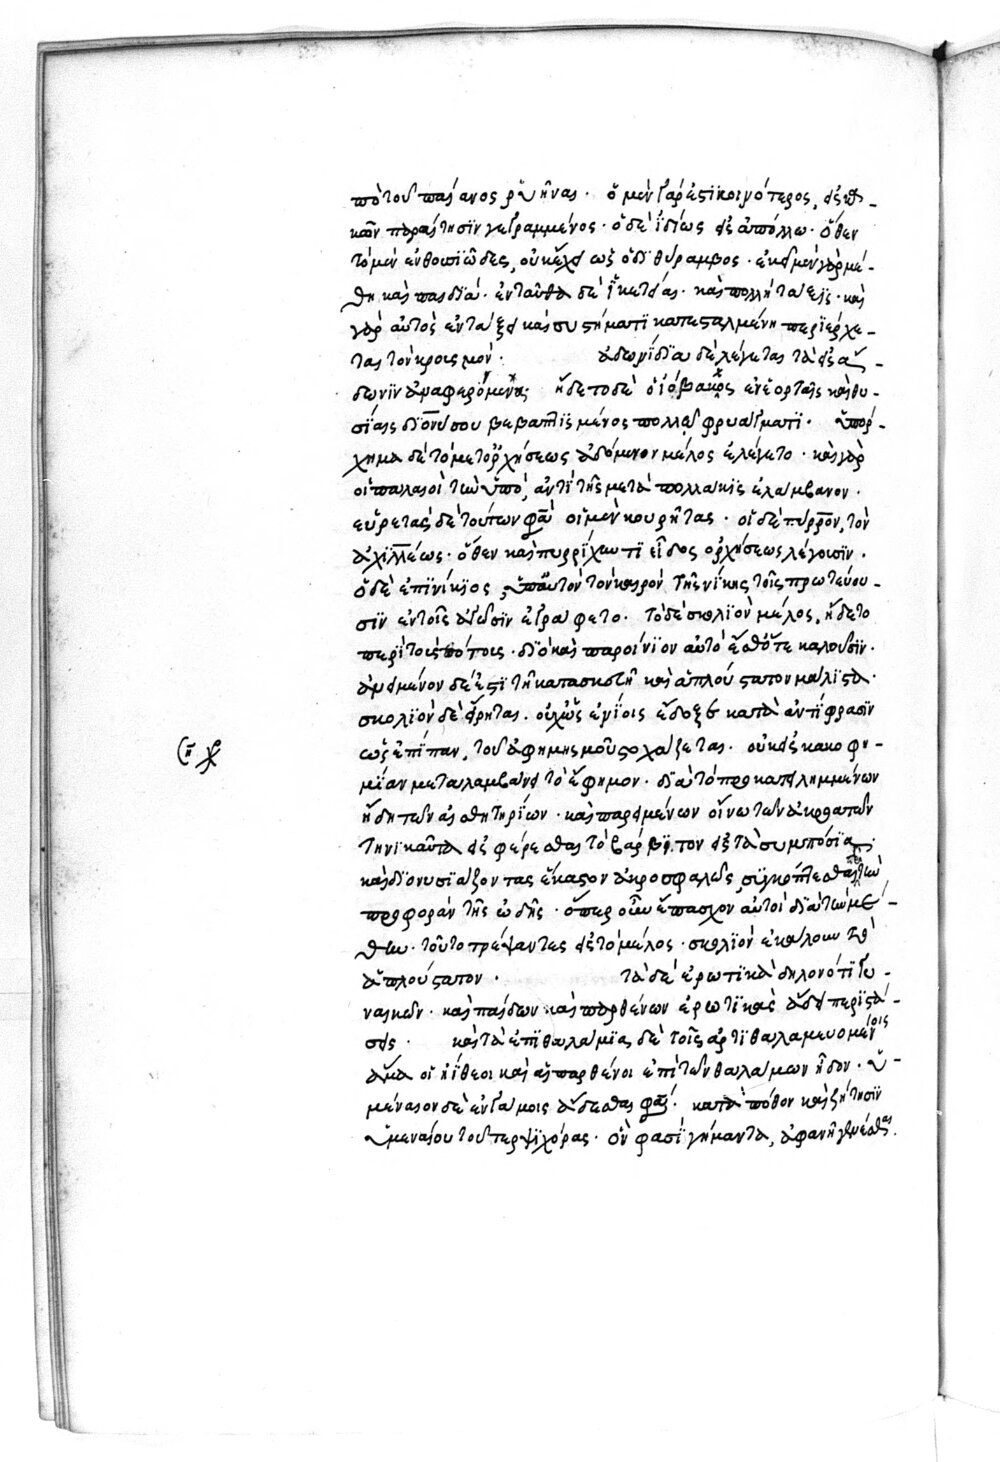 πὸ τοῦ παιᾶνος ῥυῆναι. ὁ μὲν γάρ ἐστι κοινότερος, εἰς κα-
κῶν παραίτησιν γεγραμμένος. ὁ δὲ ἰδίως εἰς ἀπόλλω. ὅθεν
τὸ μὲν ἐνθουσιῶδες, οὐκ ἔχει ὡς ὁ διθύραμβος. ἐκεῖ μὲν γὰρ μέ-
θη καὶ παιδιά. ἐνταῦθα δὲ ἱκετεῖαι. καὶ πολλὴ τάξις. καὶ
γὰρ αὐτὸς ἐν τάξει καὶ συστήματι κατεσταλμένη περιέρχε-
ται τὸν κροισμόν. ἀδωνίδια δὲ λέγεται τὰ εἰς ἄ-
δωνιν ἀναφερόμενα; ᾔδετο δὲ ὁ ἰόβακχος ἐν ἑορταῖς καὶ θυ-
σίαις διονύσου βεβαπτισμένος πολλῷ φρυάγματι. ὑπόρ-
χημα δὲ τὸ μετ' ὀρχήσεως ἀδόμενον μέλος ἐλέγετο. καὶ γὰρ
οἱ παλαιοὶ τὴν ὑπὸ, ἀντὶ τῆς μετὰ πολλάκις ἐλάμβανον.
εὑρετὰς δὲ τούτων φασὶ οἱ μὲν κουρῆτας. οἱ δὲ πύρρον, τὸν
ἀχιλλέως. ὅθεν καὶ πυρρίχην τι εἶδος ὀρχήσεως λέγουσιν.
ὁ δὲ ἐπινίκιος ὑπ' αὐτὸν τὸν καιρὸν τῆς νίκης τοῖς πρωτεύου-
σιν ἐν τοῖς ἀγῶσιν ἐγράφετο. τὸ δὲ σκολιὸν μέλος, ᾔδετο
περὶ τοὺς πότους. διὸ καὶ παροίνιον αὐτὸ ἔσθ' ὅτε καλοῦσιν.
ἀνειμένον δέ ἐστι τῇ κατασκευῇ καὶ ἁπλούστατον μάλιστα.
σκολιὸν δὲ εἴρηται. οὐχ ὡς ἐνίοις ἔδοξε κατὰ ἀντίφρασιν
ὡς ἐπίπαν, τοῦ εὐφημισμοῦ στοχάζεται. οὐκ εἰς κακοφη-
μίαν μεταλαμβάνει τὸ εὔφημον. διὰ τὸ προκατειλημμένων
ἤδη τῶν αἰσθητηρίων. καὶ παρειμένων οἴνῳ τῶν ἀκροατῶν
τηνικαῦτα εἰσφέρεσθαι τὸ βάρβιτον εἰς τὰ συμπόσια.
καὶ διονυσιάζοντας ἕκαστον ἀκροσφαλῶς συγκόπτεσθαι περὶ τὴν
προφορὰν τῆς ᾠδῆς. ὅπερ οὖν ἔπασχον αὐτοὶ διὰ τὴν μέ-
θην. τοῦτο τρέψαντες εἰς τὸ μέλος. σκολιὸν ἐκάλουν τὸ
ἁπλούστατον. τὰ δὲ ἐρωτικὰ δηλονότι γυ-
ναικῶν. καὶ παίδων καὶ παρθένων ἐρωτικὰς ᾄδει περιστά-
σεις. καὶ τὰ ἐπιθαλάμια δὲ τοῖς ἄρτι θαλαμευομένοις
ἅμα οἱ ἠΐθεοι καὶ αἱ παρθένοι ἐπὶ τῶν θαλάμων ᾖδον. ὑ-
μέναιον δὲ ἐν γάμοις ᾄδεσθαι φασί. κατὰ πόθον καὶ ζήτησιν
ὑμεναίου τοῦ τερψιχόρας. ὃν φασὶ γήμαντα, ἀφανῆ γενέσθαι.